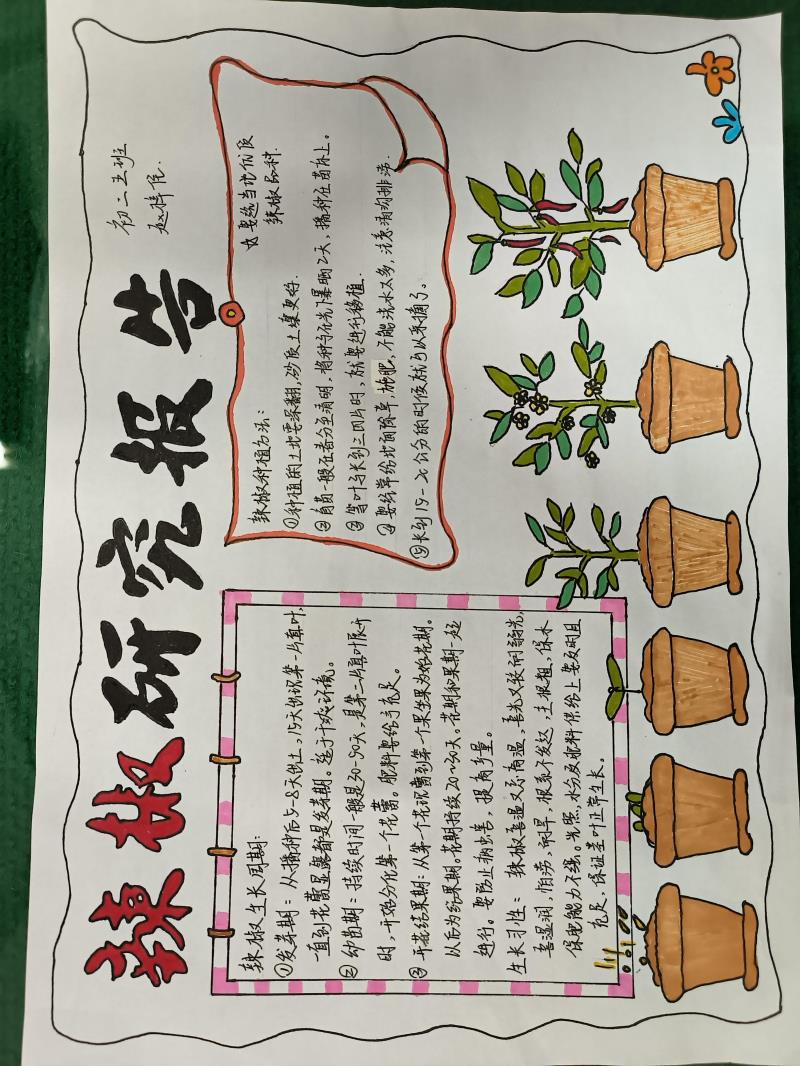 辣椒研究报告
初二五班
辣椒生长周期:
①发芽期:从播种后5-8天倒土,15天出现第一片真叶,
直到花蕾显露都是发芽期。适于干燥环境。
②幼苗期:持续时间一般是30-50天,是第二片真叶展开
时,开始分化第一个花蕾。肥料要给予充足。
③开花结果期:从第一个花现蕾到第一个果坐果为始花期。
以后为结果期。花期持续20-30天。花期和果期一起
进行。要防止病虫害,提高产量。
生长习性:辣椒喜温又忌高温,喜光又较耐弱光,
喜湿润,怕涝,耐旱,根系不发达,主根粗,保水
保肥能力不强。光照,水分及肥料供给上要及时且
充足,保证茎叶正常生长。
辣椒种植方法:
要选当地优质
辣椒品种.
①种植的土地要深翻,砂质土壤更好.
②育苗一般在春分至清明,将种子在光下暴晒2天,播种在苗床上。
③等叶子长到三四片时,就要进行移植.
④要经常给地面除草,施肥,不能浇水太多,注意清沟排涝.
⑤长到15-20公分的时候就可以采摘了。